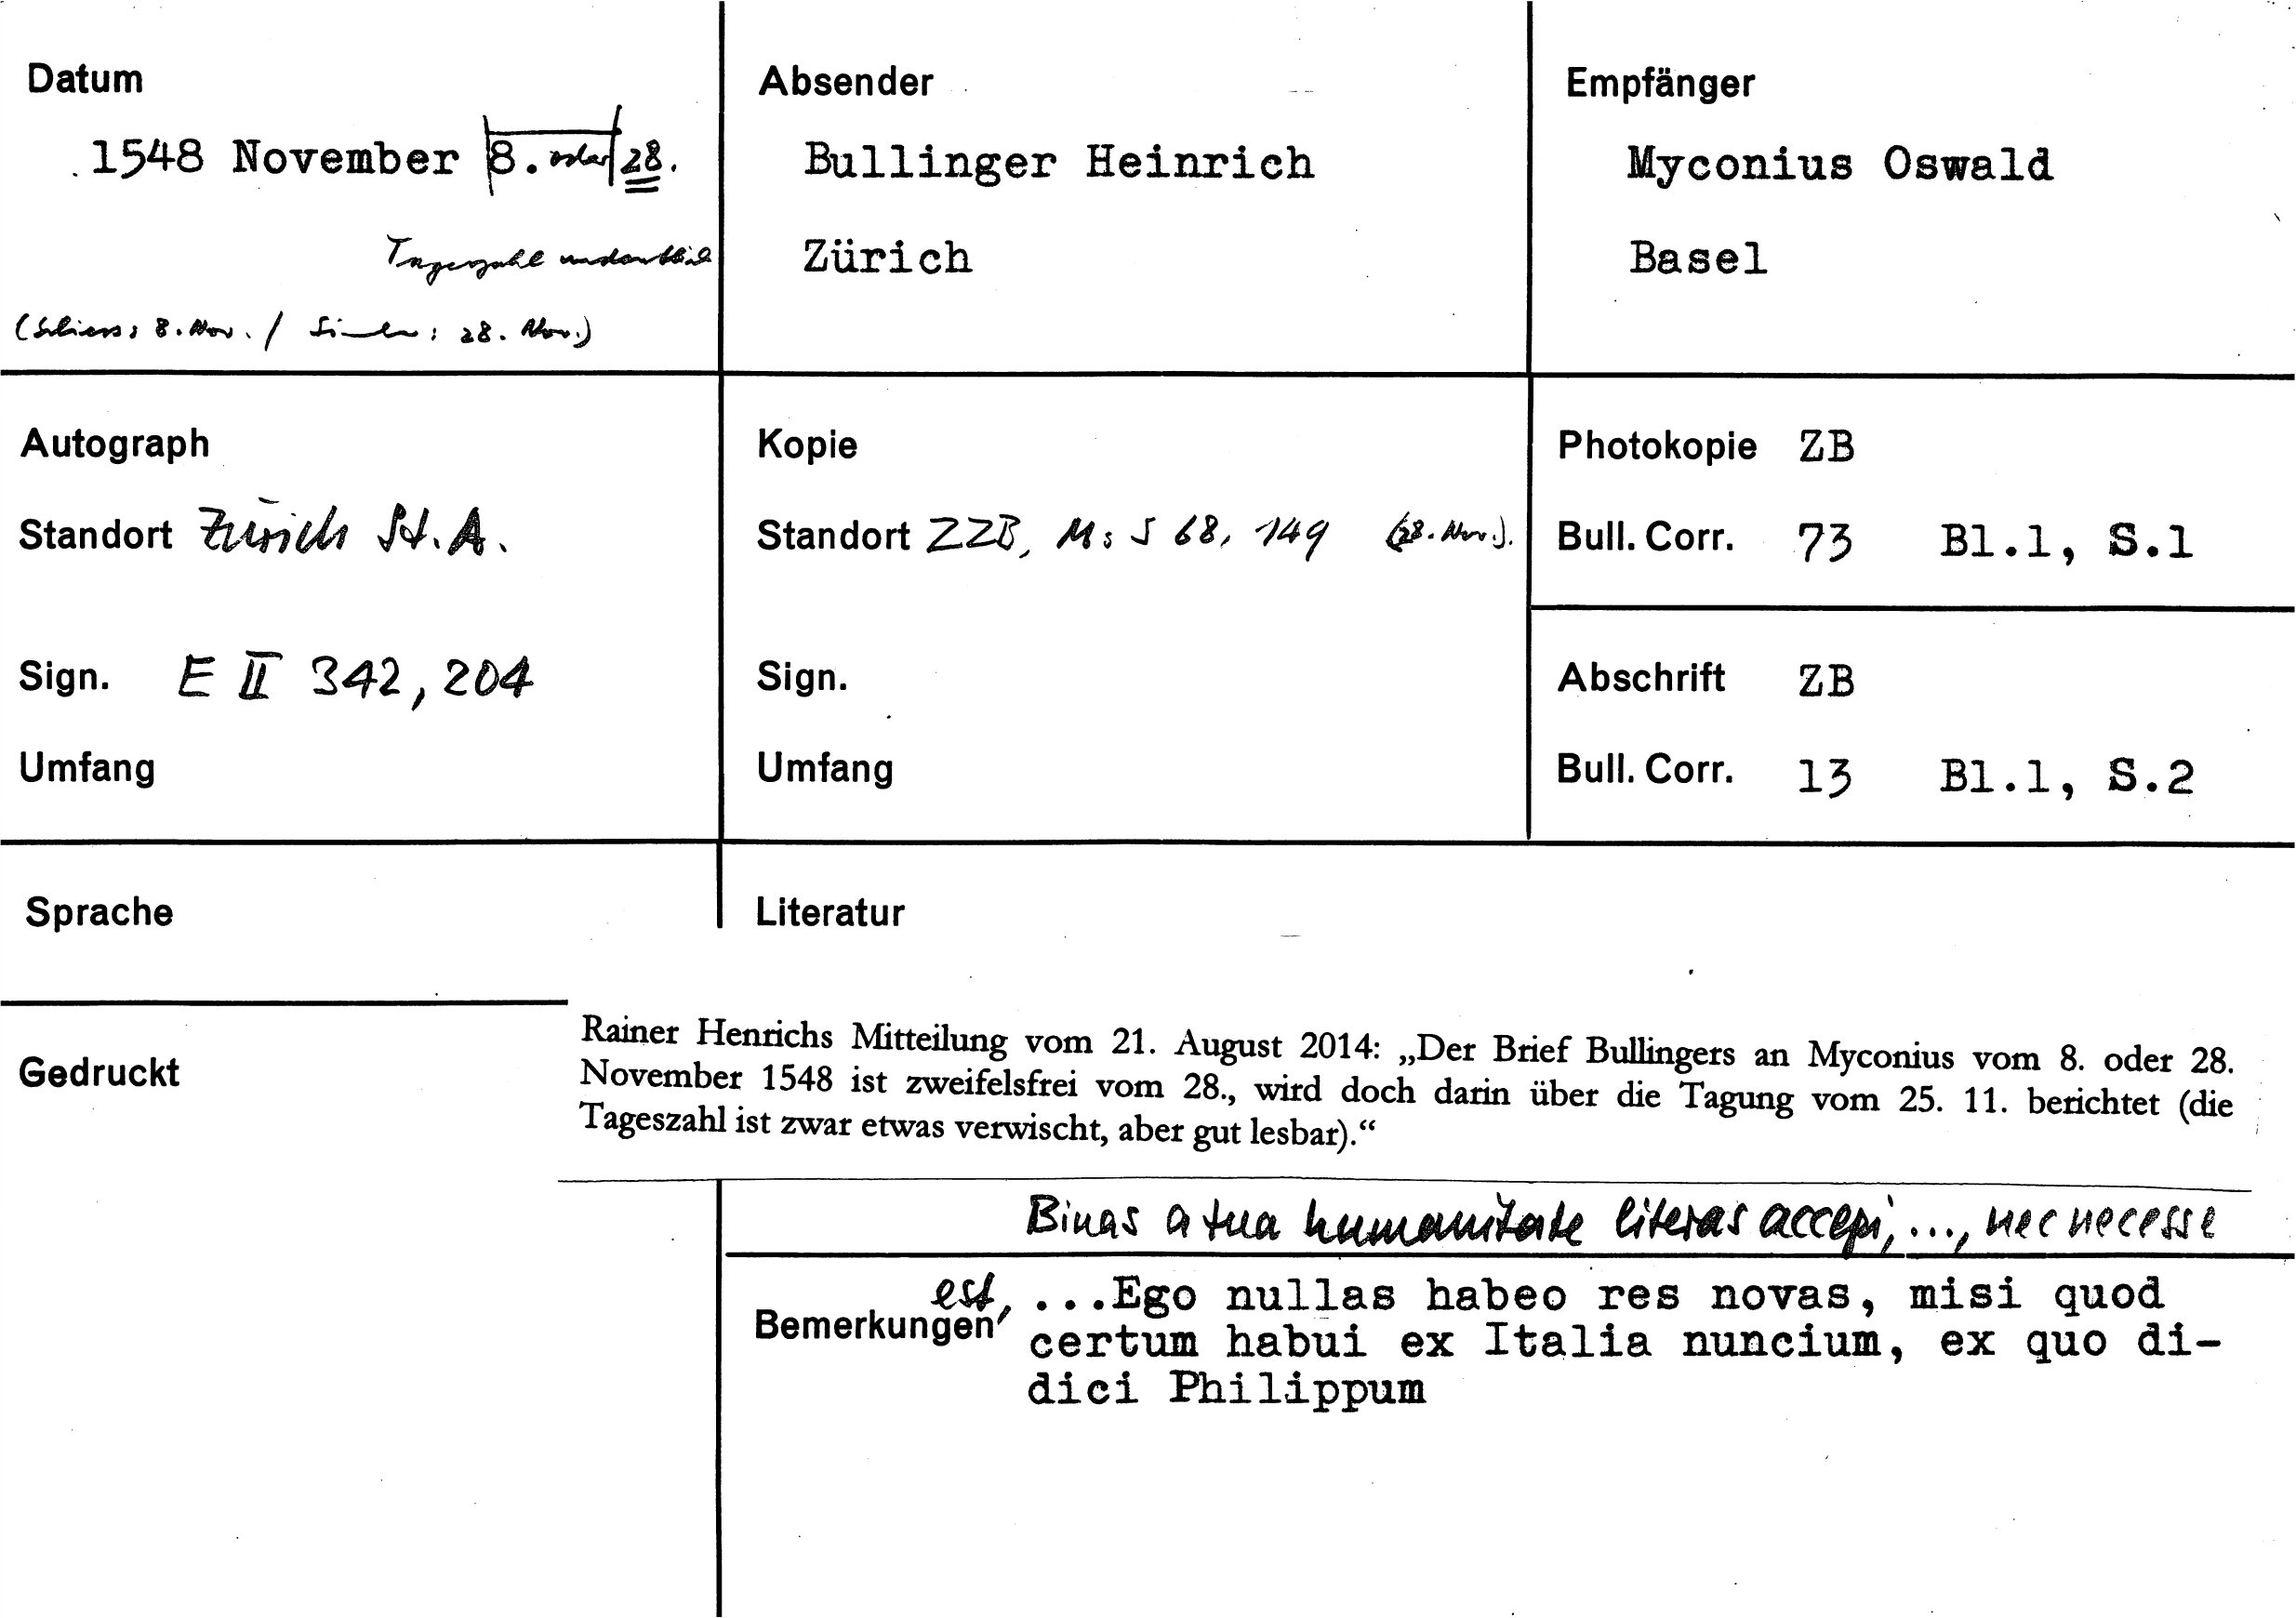 Datum
1548 November 8. oder 28.
Tageszahl undeutlich
(Schiess: 8. Nov. / Simler: 28. Nov.)
Absender
Bullinger Heinrich
Zürich
Empfänger
Myconius Oswald
Basel
Autograph
Standort Zürich St.A.
Sign. E II 342, 204
Umfang
Kopie
Standort ZZB, Ms S 68, 149 (28. Nov.).
Sign.
Umfang
Photokopie ZB
Bull. Corr. 73 Bl.1, S.1
Abschrift ZB
Bull. Corr. 13 Bl.1, S.2
Sprache
Literatur
Gedruckt
Rainer Henrichs Mitteilung vom 21. August 2014: „Der Brief Bullingers an Myconius vom 8. oder 28.
November 1548 ist zweifelsfrei vom 28., wird doch darin über die Tagung vom 25. 11. berichtet (die
Tageszahl ist zwar etwas verwischt, aber gut lesbar).“
Binas a tua humanitate literas accepi, ..., nec necesse
Bemerkungen
est, ...Ego nullas habeo res novas, misi quod
certum habui ex Italia nuncium, ex quo di-
dici Philippum